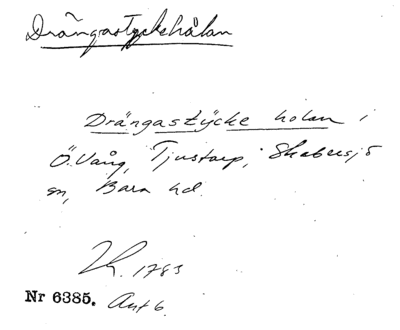 Drängastyckshålan
Drängastÿcke holan i
Ö. Vång, Tjustorp, Skabersjö
sn, Bara hd.
Lk. 1783
Nr 6385. Ant 6